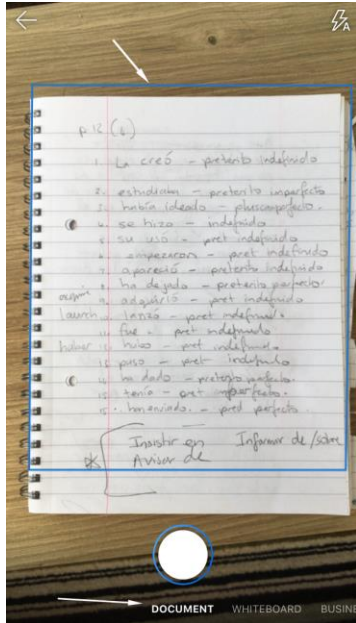 p.12 (b)
1. La creó – preterito indefinido
2. estudiaba – preterito imperfecto
3. había ideado – pluscuamperfecto.
4. se hizo – indefinido
5. su usó – pret indefinido
6. empezaron – pret indefinido
7. apareció – preterito indefinido
8. ha dejado – preterito perfecto
9. adquirió – pret indefinido
launch 10. lanzó – pret indefinido.
11. fue – pret indefinido
12. hizo – pret indefinido
13. puso – pret indefinido
14. ha dado – preterito perfecto.
15. tenía – pret imperfecto.
han enviado. – pred perfecto
Insistir en Informar de/sobre
Avisar de
DOCUMENT WHITEBOARD BUSINE